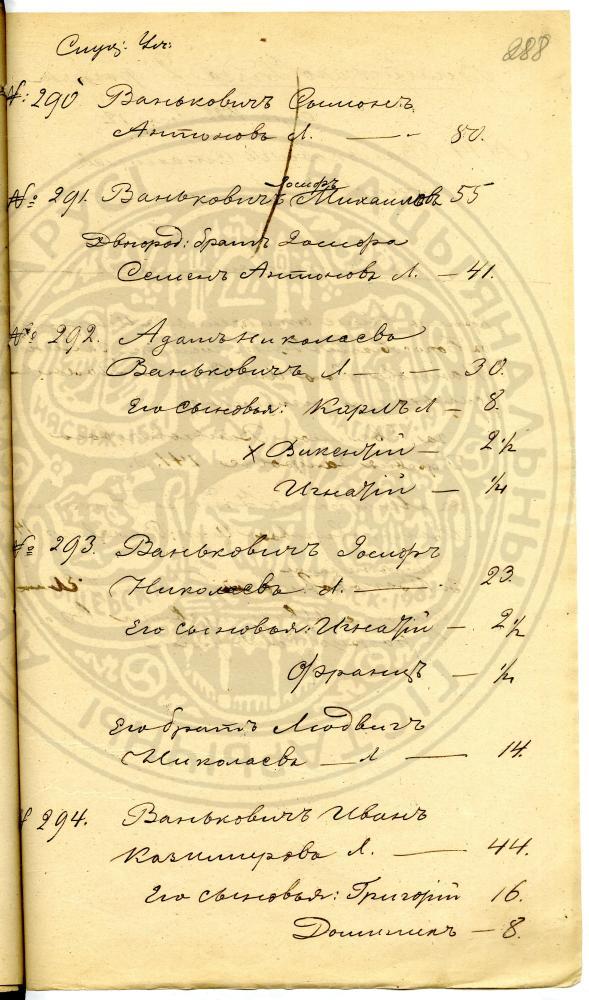 288
Слуц: Уъ:
№: 290 Ваньковичъ Сымонъ
Антоновъ Л. — 80.
№ 291. Ваньковичъ Іосифъ Михаиловъ 55
Двоюрод: братъ Іосифа
Семенъ Антоновъ Л. — 41.
№ 292. Адамъ Николаевъ
Ваньковичъ Л — 30.
Его сыновья: Карлъ Л — 8.
х Викентій — 2 1/2
Игнатій — 1/4
№ 293. Ваньковичъ Іосифъ
Николаевъ Л. — 23.
Его сыновья: Игнатій — 2 1/2
Францъ — 1/4
Его братъ Людвигъ
Николаевъ — Л — 14.
294. Ваньковичъ Иванъ
Казимировъ Л. — 44.
Его сыновья: Григорій 16.
Доминикъ — 8.